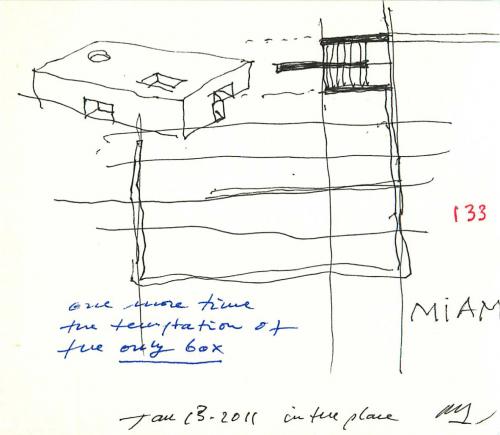 133
MIAM
one more time
the temptation of
the only box
Jan 13-2011 in the place